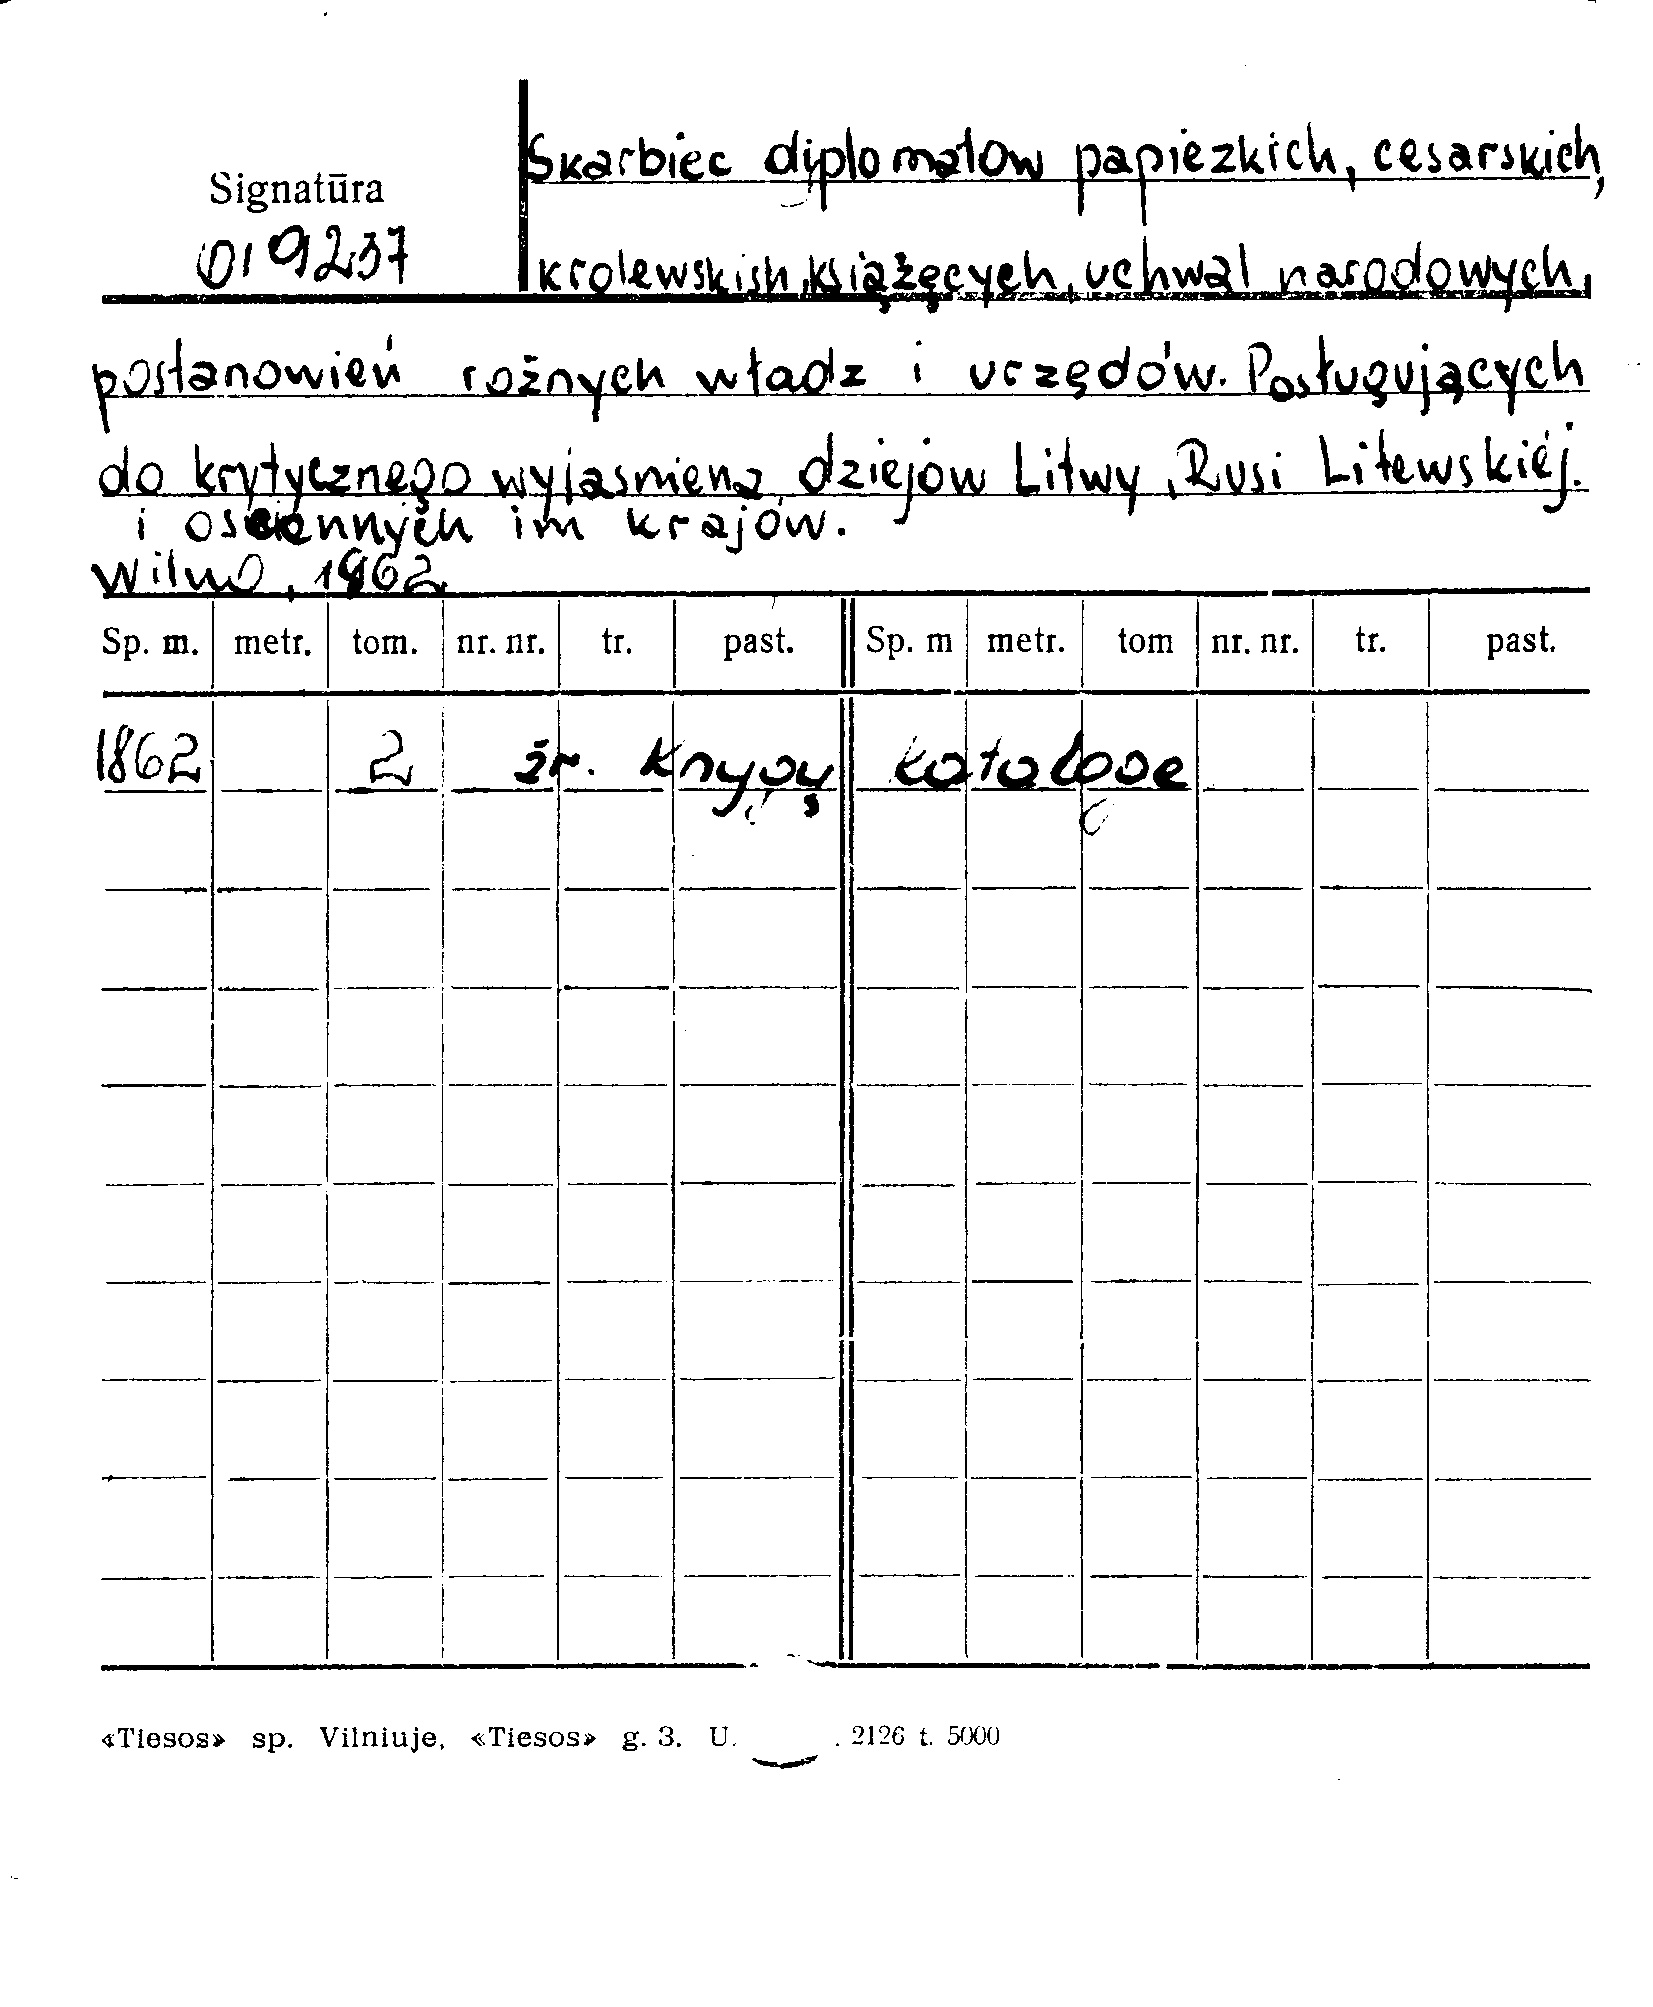 Signatūra
019237
Skarbiec diplomatow papiezkich, cesarskich,
krolewskish, książęcych, uchwal narodowych,
postanowień rożnych władz i urzędów. Posługujących
do krytycznego wyjasmiena dziejow Litwy, Rusi Litewskiéj.
i osciennych im krajów.
Wilno, 1862
Sp. m. metr. tom. nr. nr. tr. past. Sp. m metr. tom nr. nr. tr. past.
1862 2 žr. Knygų kataloge
«Tiesos» sp. Vilniuje, «Tiesos» g. 3. U. . 2126 t. 5000